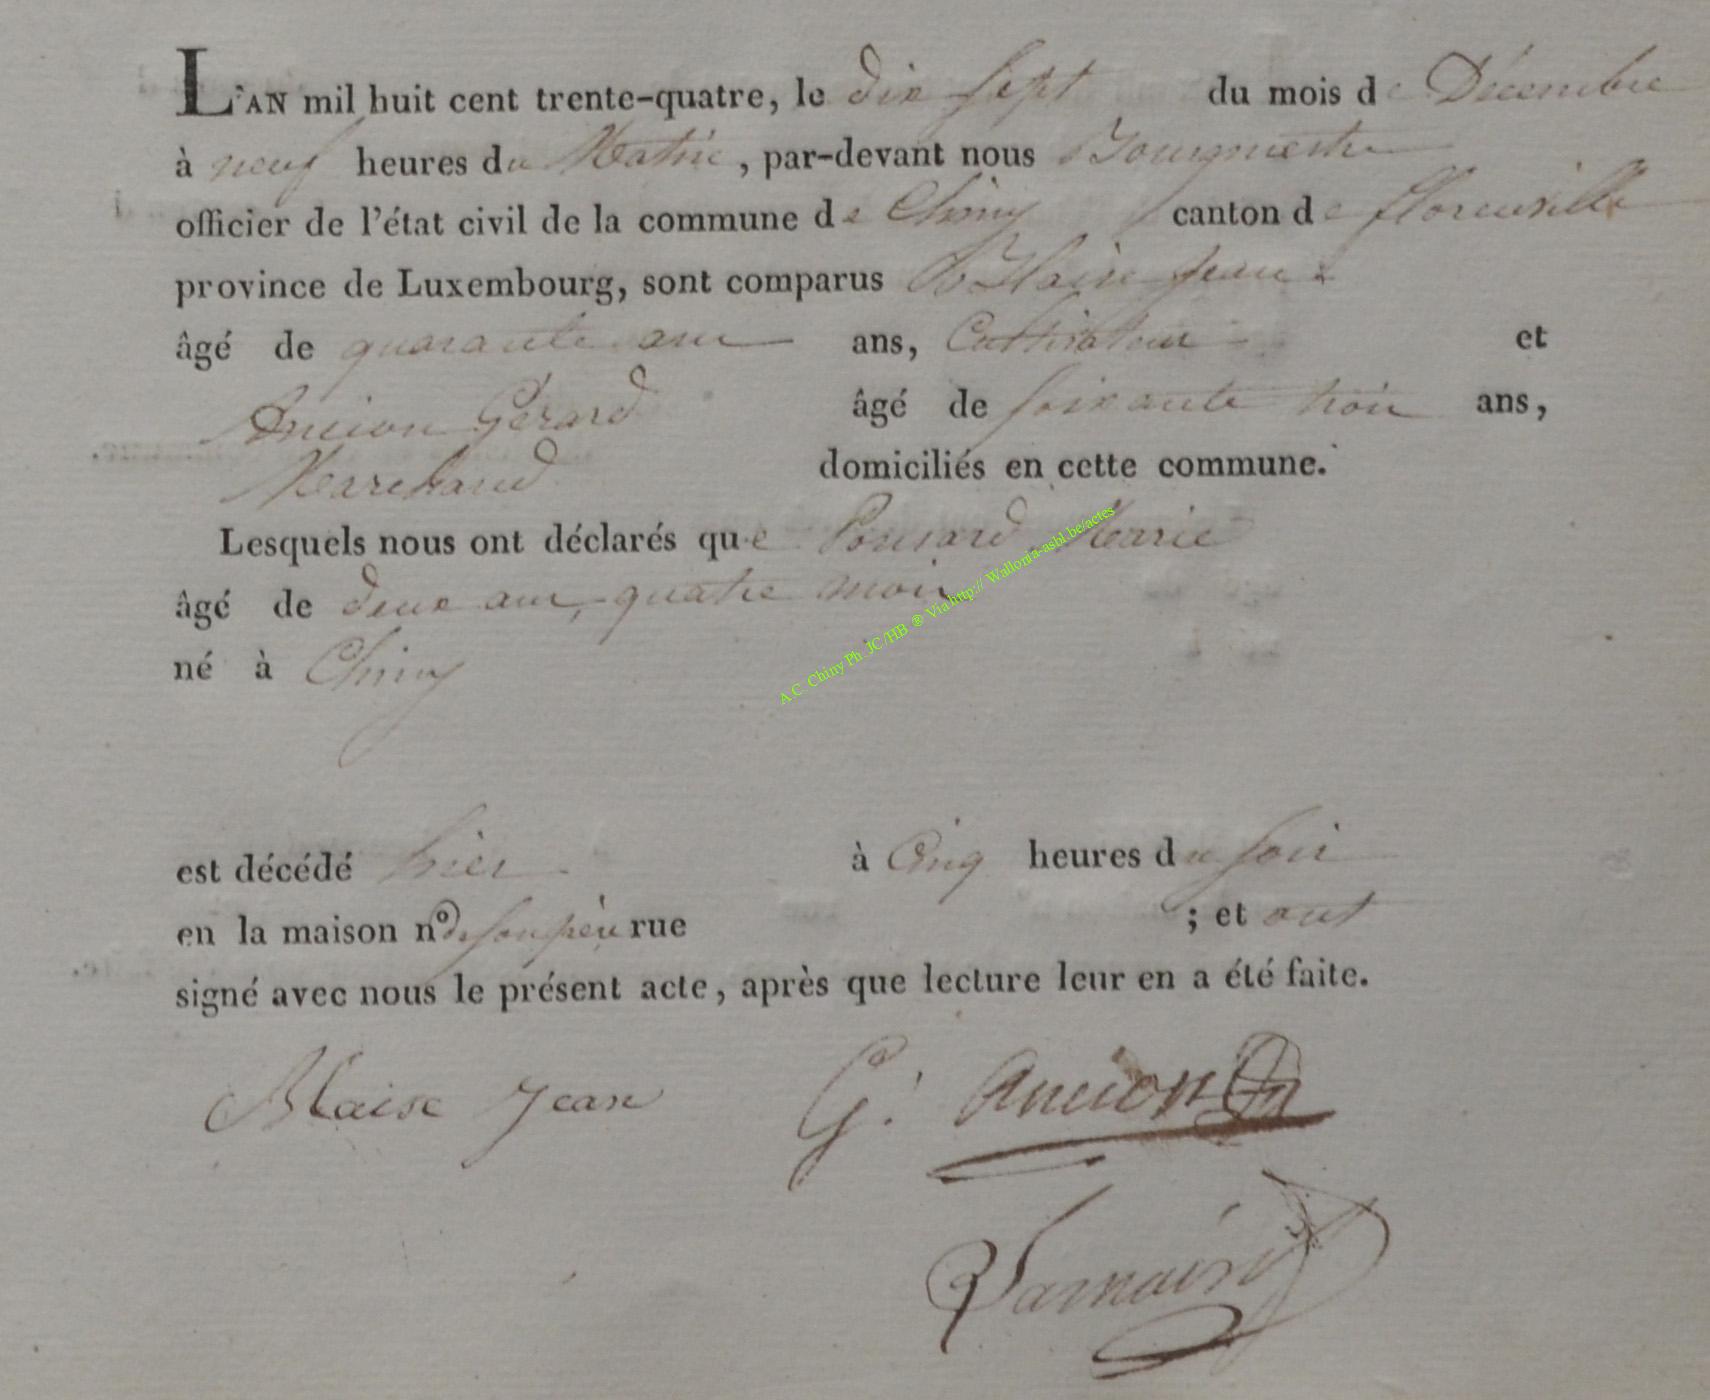 L'AN mil huit cent trente-quatre, le dix sept du mois de Décembre
à neuf heures du Matin, par-devant nous Bourgmestre
officier de l'état civil de la commune de Chiny canton de florenville
province de Luxembourg, sont comparus Blaise Jean
âgé de quarante ans ans, Cultivateur et
Ancion Gérard âgé de soixante trois ans,
Marchand domiciliés en cette commune.
Lesquels nous ont déclarés que Ponsard Marie
âgé de deux ans, quatre mois
né à Chiny
A C Chiny Ph. JC/HB ® Via http:// Wallonia-asbl.be/actes
est décédé hier à Cinq heures du soir
en la maison n° de son père rue ; et ont
signé avec nous le présent acte, après que lecture leur en a été faite.
Blaise Jean G. Ancion